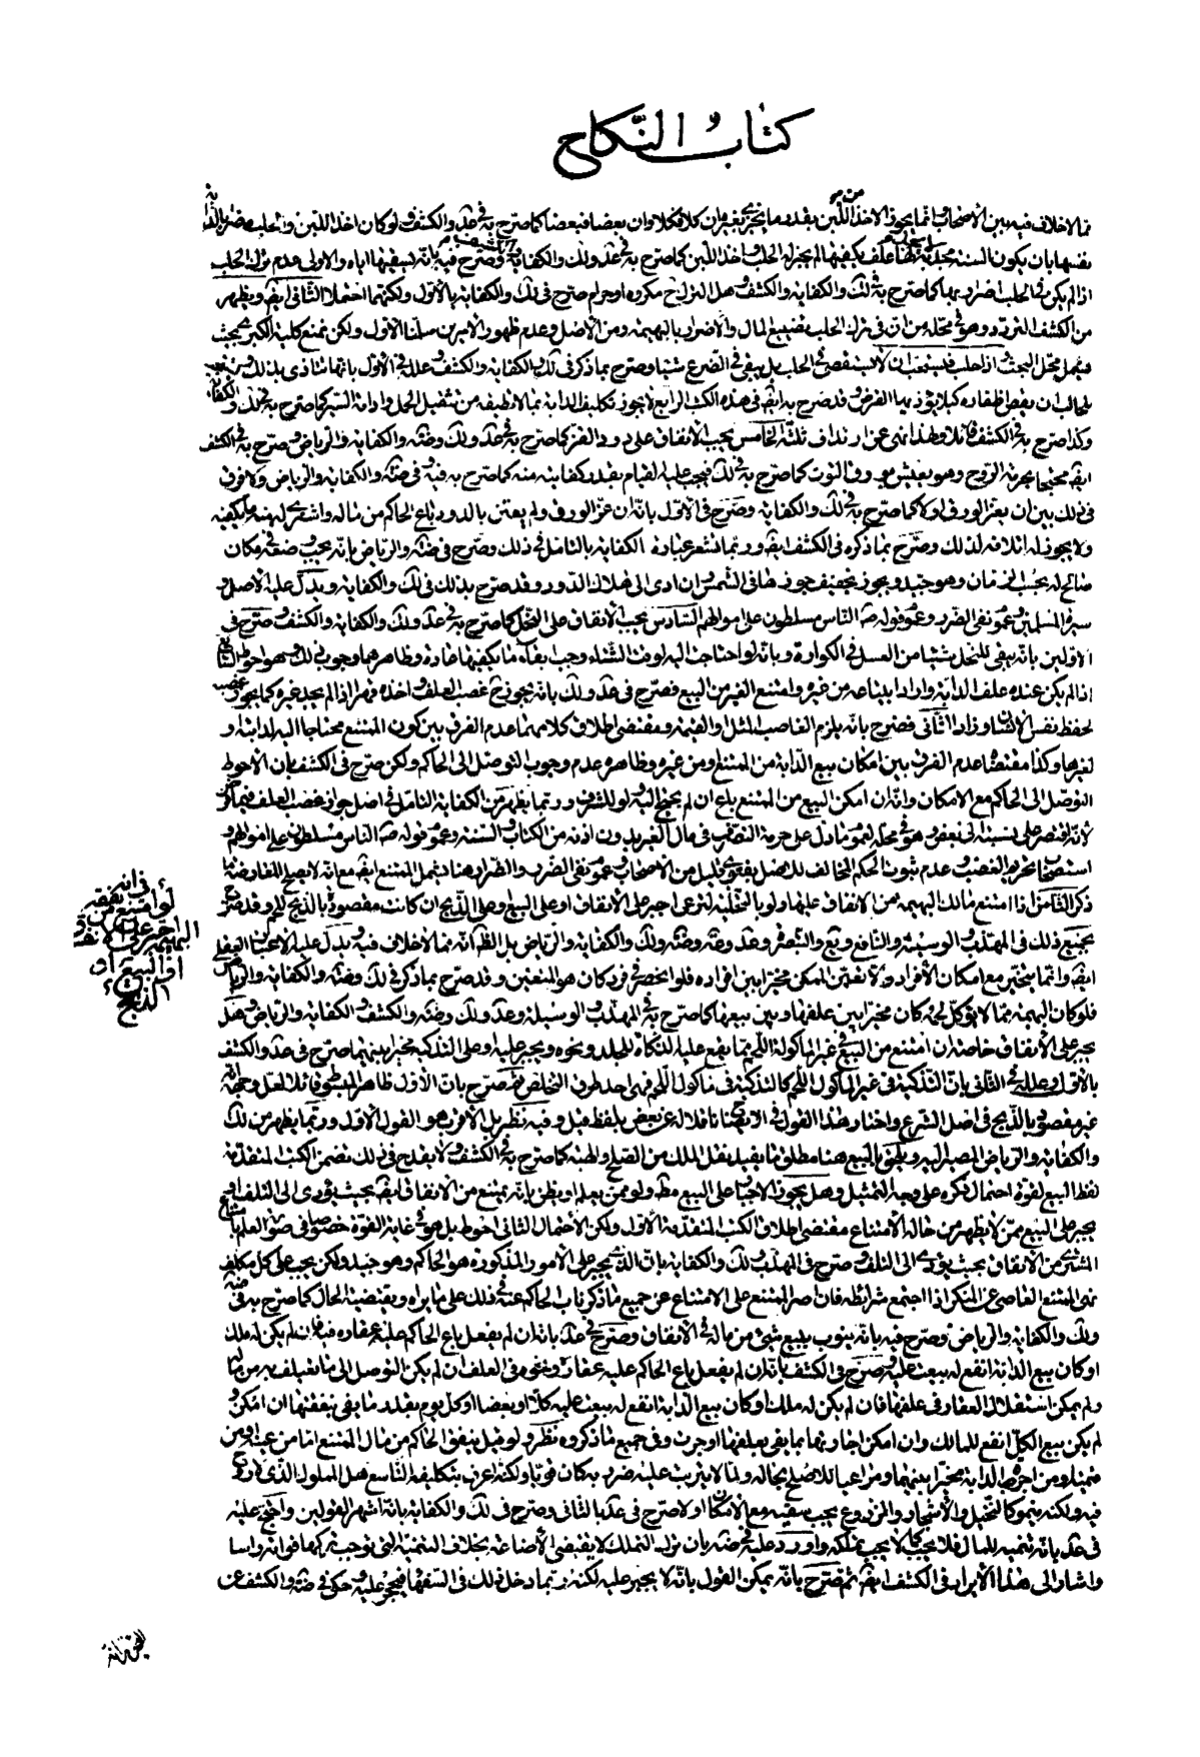 كتاب النكاح
مما لا خلاف فيه بين الأصحاب وانما يجوز الاخذ من اللبن بقدر ما يجتزى بغيره ان كلا فكلا وان بعضا فبعضا كما صرح به فى عد والكشف ولو كان اخذ اللبن والحلب مضرا بالدابة
نفسها بان يكون السنة مجدبة لا تجد علفا يكفيها لم يجز له الحلب واخذ اللبن كما صرح به فى عد ولك والكفاية والكشف وصرح فيه بانه يسقيها اياه والاولى عدم ترك الحلب
اذا لم يكن فى الحلب اضرار بها كما صرح به فى لك والكفاية والكشف وهل الترك ح مكروه او حرام صرح فى لك والكفاية بالأول ولكنهما احتملا الثانى ايضا ويظهر
من الكشف التردد وهو فى محله من ان فى ترك الحلب تضييع المال والاضرار بالبهيمة ومن الأصل وعدم ظهور الامرين سلمنا الاول ولكن نمنع كلية الكبرى بحيث
يشمل محل البحث واذا حلب فليستحب ان لا يستقصى فى الحلب بل يبقى فى الضرع شيئا وصرح بما ذكر فى لك والكفاية والكشف وعلله فى الأول بانها تتاذى بذلك ويستحب
للحالب ان يقص ظفاره كيلا يؤذيها القرص وقد صرح به ايضا فى هذه الكتب الرابع لا يجوز تكليف الدابة ما لا تطيقه من تثقيل الحمل وادامة السير كما صرح به فى لك والكفاية
وكذا صرح به فى الكشف قائلا ولهذا نهى عن ارتداف ثلثة الخامس يجب الانفاق على دود القز كما صرح به فى عد ولك وضه والكفاية والرياض وصرح به فى الكشف
ايضا محتجا بحرمة الروح وهو يعيش بورق التوت كما صرح به فى لك فيجب عليه القيام بقدر كفايته منه كما صرح به فيه وفى ضه والكفاية والرياض ولا فرق
فى ذلك بين ان يعز الورق او لا كما صرح به فى لك والكفاية وصرح فى الأول بانه ان عز الورق ولم يعتن بالدود باع الحاكم من ماله واشترى لهنه ما يكفيه
ولا يجوز له اتلافه لذلك وصرح بما ذكره فى الكشف ايضا وربما تشعر عبارة الكفاية بالتامل فى ذلك وصرح فى ضه والرياض بانه يجب وضعه فى مكان
صالح له بحسب الزمان وهو جيد ويجوز تجفيف جوزها فى الشمس وان ادى الى هلاك الدود وقد صرح بذلك فى لك والكفاية ويدل عليه الاصل و
سيرة المسلمين وعموم نفى الضرر وعموم قوله ص الناس مسلطون على اموالهم السادس يجب الانفاق على النحل كما صرح به فى عد ولك والكفاية والكشف وصرح فى
الاولين بانه يبقى للنحل شيئا من العسل فى الكوارة وبانه لو احتاجت اليه لوقت الشتاء وجب ابقاء ما يكفيها عادة وظاهرهما وجوب ذلك وهو احوط السابع
اذا لم يكن عنده علف الدابة واراد ابتياعه من غيره وامتنع الغير من البيع فصرح فى عد ولك بانه يجوز ح غصب العلف واخذه قهرا اذا لم يجد غيره كما يجوز غصبه
لحفظ نفس الانسان وزاد الثانى فصرح بانه يلزم الغاصب المثل او القيمة ومقتضى اطلاق كلامهما عدم الفرق بين كون الممتنع محتاجا اليه لدابته و
لغيرها وكذا مقتضاه عدم الفرق بين امكان بيع الدابة من الممتنع او من غيره وظاهره عدم وجوب التوصل الى الحاكم ولكن صرح فى الكشف بان الأحوط
التوصل الى الحاكم مع الامكان وانه ان امكن البيع من الممتنع باع ان لم يحتج اليه او للشرف وربما يظهر من الكفاية التامل فى اصل جواز غصب العلف فيما ذكر
لانه اقتصر على نسبته الى بعض وهو فى محله لعموم ما دل على حرمة التصرف فى مال الغير بدون اذنه من الكتاب والسنة وعموم قوله ص الناس مسلطون على اموالهم و
استصحاب تحريم الغصب وعدم ثبوت الحكم المخالف للاصل بفتوى قليل من الأصحاب وعموم نفى الضرر والضرار هنا يشمل الممتنع ايضا مع انه لا يصلح للمعارضة ما
ذكر الثامن اذا امتنع مالك البهيمة من الانفاق عليها ولو بالتخلية لترعى اجبر على الانفاق او على البيع او على الذبح ان كانت مقصودة بالذبح للحم وقد صرح
بجميع ذلك فى المهذب والوسيلة والنافع ويع والتبصرة وعد وضه وضه ولك والكفاية والرياض بل الظ انه مما لا خلاف فيه ويدل عليه الاعتبار العقلى
ايضا وانما يتخير مع امكان الأفراد والا تعين الممكن مخيرا بين افراده فلو انحصر فى فرد كان هو المتعين وقد صرح بما ذكر فى لك وضه والكفاية والرياض
فلو كان البهيمة مما لا يؤكل لحمه كان مخيرا بين علفها وبين بيعها كما صرح به فى المهذب الوسيلة وعد ولك وضه والكشف والكفاية والرياض وهل
يجبر على الأنفاق خاصة ان امتنع من البيع فى غير الماكولة اللحم مما يقع عليه الذكاة للجلد ونحوه ويجبر عليه او على التذكية مخيرا بينهما صرح فى عد والكشف
بالأول وعلله فى الثانى بان التذكية فى غير الماكول اللحم كالتذكية فى ماكول اللحم فهى احد طرق التخلص ثم صرح بان الأول ظاهر المبسوط قائلا لعل وجهه انه
غير مقصود بالذبح فى اصل الشرع واختار هذا القول فى الايضاح ناقلا له عن بعض بلفظ قيل وفيه نظر بل الاقرب هو القول الأول وربما يظهر من لك
والكفاية والرياض المصير اليه ويلحق بالبيع هنا مطلق ما يفيد نقل الملك من الصلح والهبة كما صرح به فى الكشف ولا يقدح فى ذلك تضمن الكتب المتقدمة
لفظ البيع لقوة احتمال ذكره على وجه التمثيل وهل يجوز الاجبار على البيع مط ولو ممن يعلم او يظن بانه يمتنع من الانفاق ايضا بحيث يؤدى الى التلف او
يجبر على البيع ممن لا يظهر من حاله الامتناع مقتضى اطلاق الكتب المتقدمة الاول ولكن الاحتمال الثانى احوط بل هو فى غاية القوة خصوصا فى صورة العلم بامتناع
المشترى من الانفاق بحيث يؤدى الى التلف وصرح فى المهذب ولك والكفاية بان الذى يجبر على الأمور المذكورة هو الحاكم وهو جيد ولكن يجب على كل مكلف
نهى الممتنع العاصى عن المنكر اذا اجتمع شرائطه فان اصر الممتنع على الامتناع عن جميع ما ذكر ناب الحاكم عنه فى ذلك على ما يراه ويقتضيه الحال كما صرح به فى ضه
ولك والكفاية والرياض وصرح فيه بانه ينوب ببيع شئ من ماله فى الانفاق وصرح فى عد بانه ان لم يفعل باع الحاكم عليه عقاره فيه فان لم يكن له ملك
او كان بيع الدابة انفع له بيعت عليه وصرح فى الكشف بانه ان لم يفعل باع الحاكم عليه عقاره ونحوه فى العلف ان لم يكن التوصل الى ما تعلف به من ماله
ولم يمكن استغلال العقار فى علفها فان لم يكن له ملك او كان بيع الدابة انفع له بيعت عليه كلا او بعضا او كل يوم بقدر ما يفى بنفقتها ان امكن و
لم يكن بيع الكل انفع للمالك وان امكن اجارتها بما يفى بعلفها اوجرت وفى جميع ما ذكروه نظر ولو قيل ينفق الحاكم من مال الممتنع اما من عينه او من
قيمته او من اجرة الدابة مخيرا بينهما ومراعيا للاصلح بحاله ولما لا يترتب عليه ضرر به كان قويا ولكنه اعرف بتكليفه التاسع هل المملوك الذى لا روح
فيه ولكنه ينمو كالنخيل والأشجار والزروع يجب سقيه مع الامكان او لا صرح فى عد بالثانى وصرح فى لك والكفاية بانه اشهر القولين واحتج عليه
فى عد بانه تنمية للمال فلا يجب كما لا يجب تملكه واورد عليه فى ضه بان ترك التملك لا يقتضى الأضاعة بخلاف التنمية التى يوجب تركها فواته راسا
واشار الى هذا الأيراد فى الكشف ايضا ثم صرح بانه يمكن القول بانه لا يجبر عليه لكنه ربما دخل ذلك فى السفه فيحجر عليه وحكى فى ضه والكشف عن
فى انه
لو امتنع من نفقة
البهيمة اجبر على الانفاق
او البيع او
الذبح